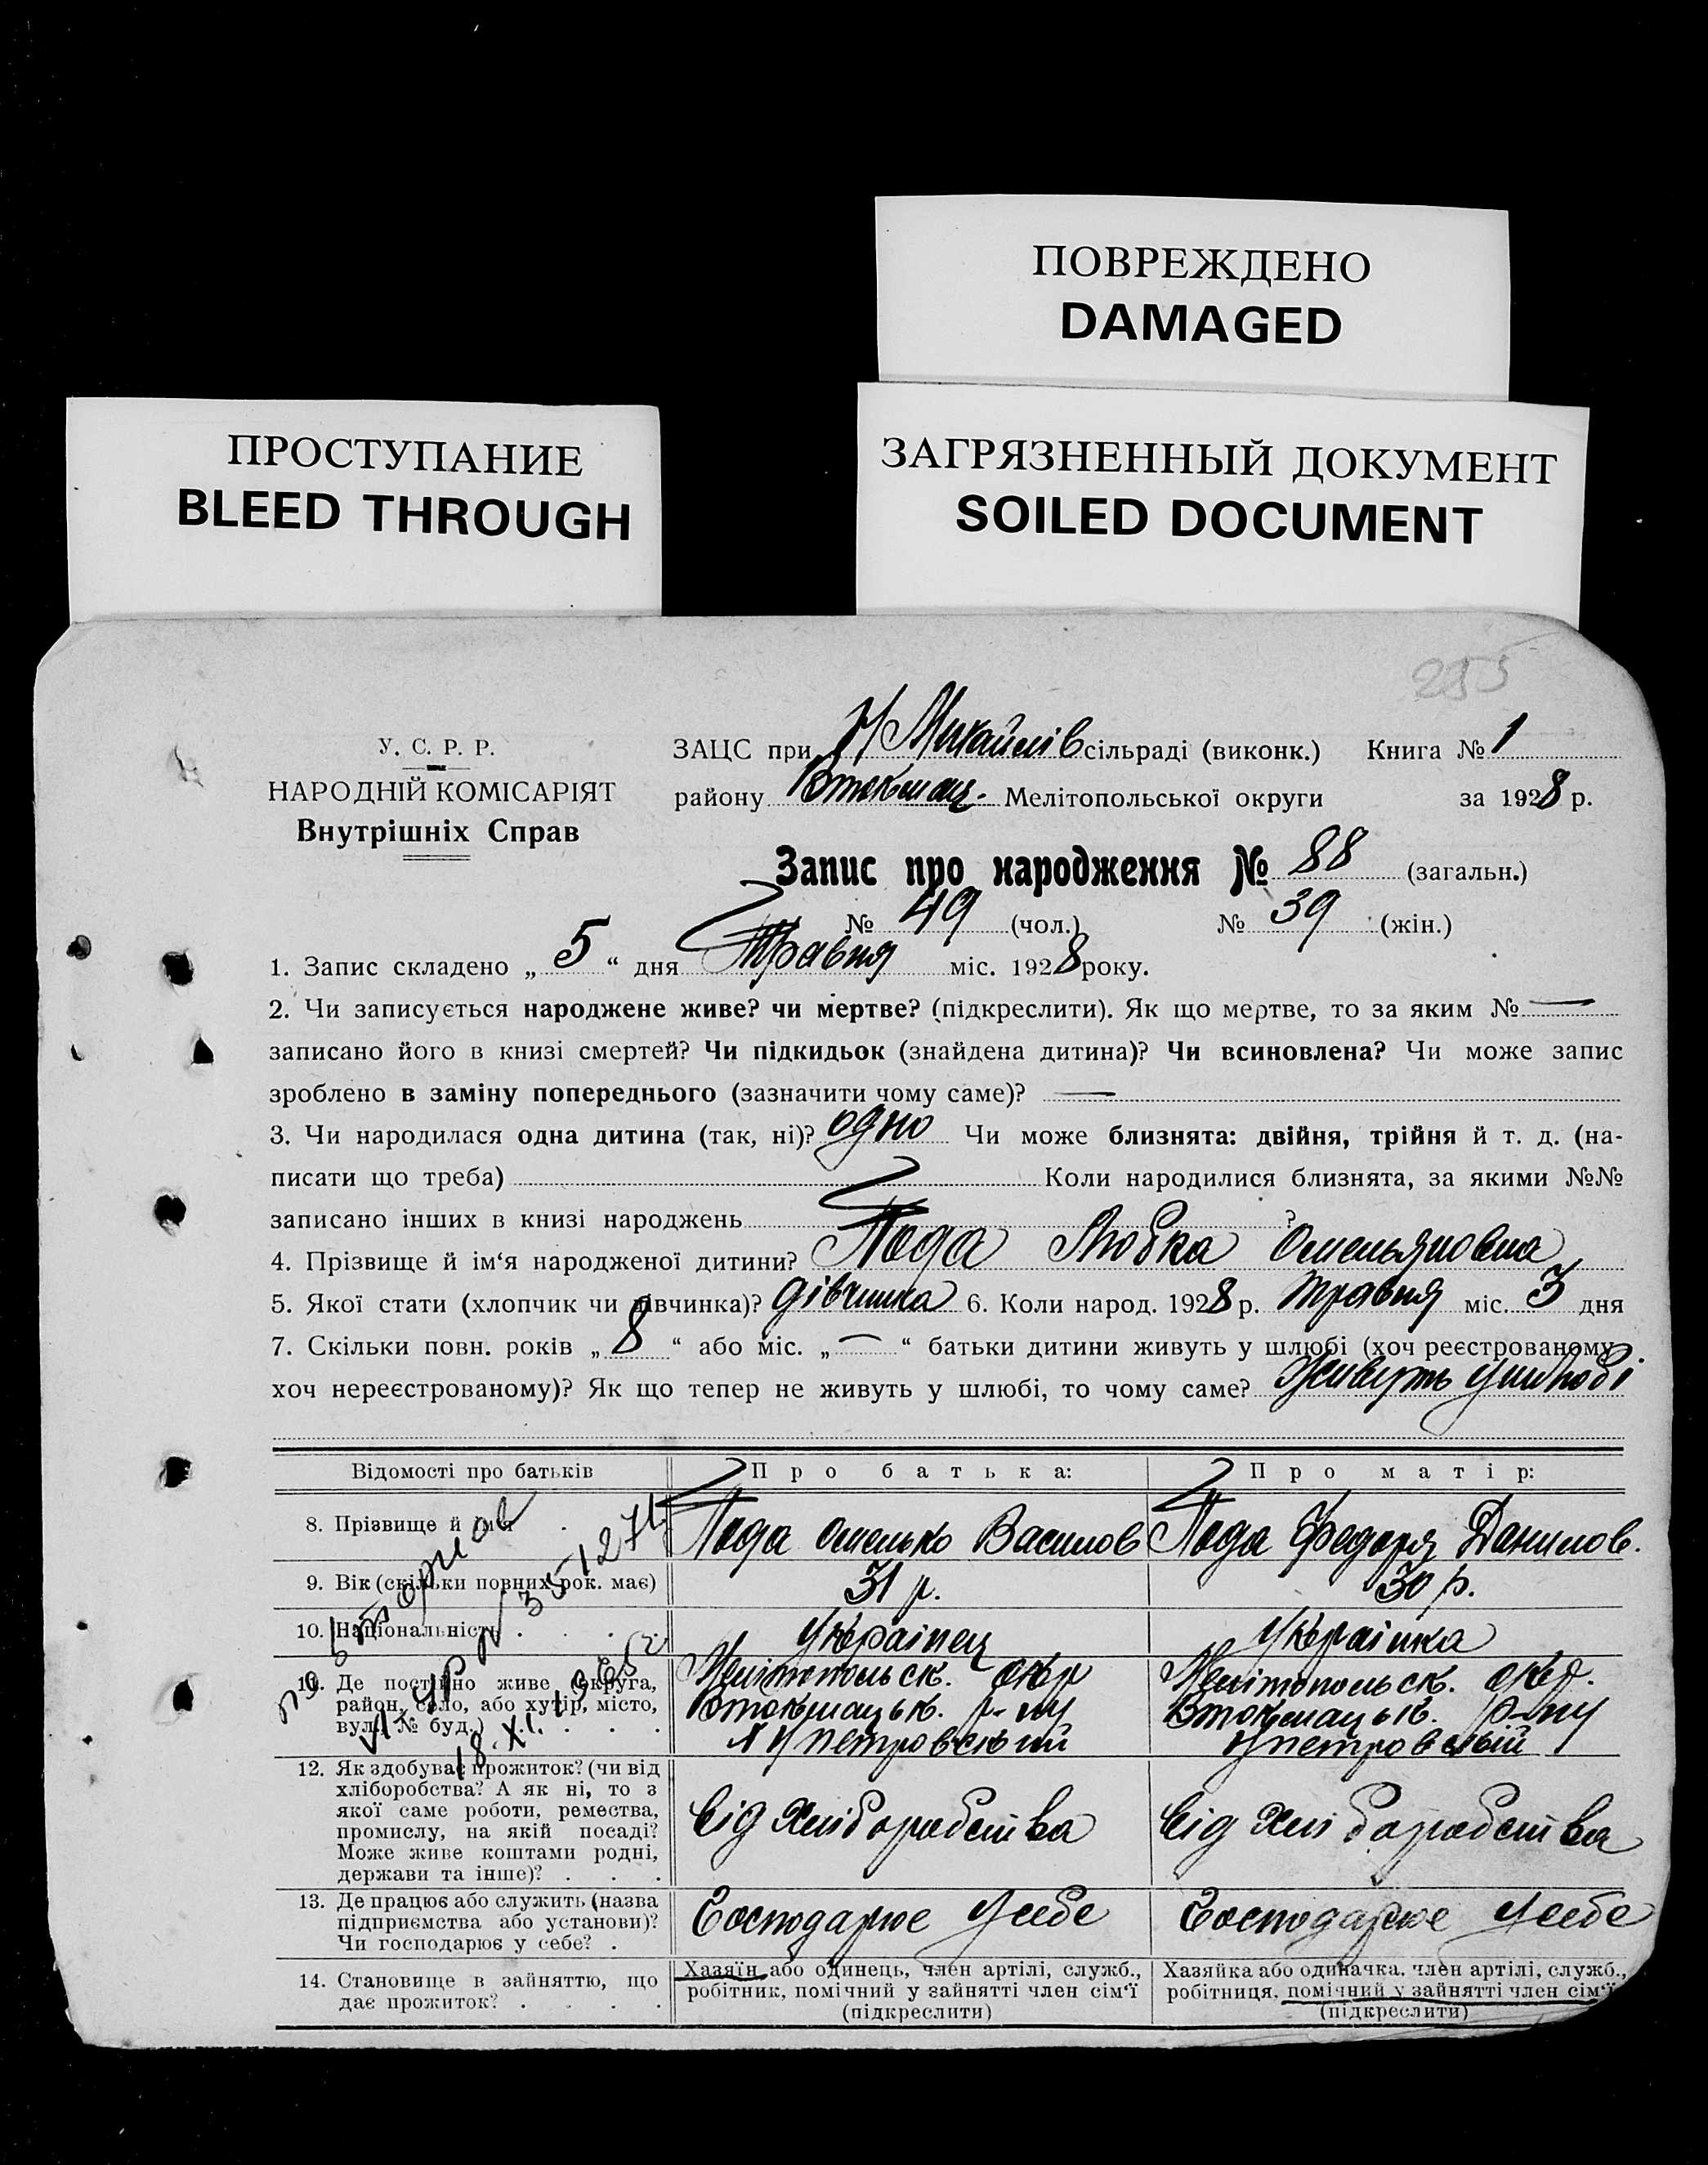 ПОВРЕЖДЕНО
DAMAGED
ПРОСТУПАНИЕ
BLEED THROUGH
ЗАГРЯЗНЕННЫЙ ДОКУМЕНТ
SOILED DOCUMENT
255
У. С. Р. Р.
НАРОДНІЙ КОМІСАРІЯТ
Внутрішніх Справ
ЗАЦС при Н Михайлів сільраді (виконк.) Книга № 1
району Втокмац. Мелітопольської округи за 1928 р.
Запис про народження № 88 (загальн.)
№ 49 (чол.) № 39 (жін.)
1. Запис складено „ 5 “ дня Травня міс. 1928 року.
2. Чи записується народжене живе? чи мертве? (підкреслити). Як що мертве, то за яким № —
записано його в книзі смертей? Чи підкидьок (знайдена дитина)? Чи всиновлена? Чи може запис
зроблено в заміну попереднього (зазначити чому саме)? —
3. Чи народилася одна дитина (так, ні)? одно Чи може близнята: двійня, трійня й т. д. (на-
писати що треба) Коли народилися близнята, за якими №№
записано інших в книзі народжень ?
4. Прізвище й ім‘я народженої дитини? Пода Любка Омельяновна
5. Якої стати (хлопчик чи дівчинка)? дівчинка 6. Коли народ. 1928 р. травня міс. 3 дня
7. Скільки повн. років „ 8 “ або міс. „ — “ батьки дитини живуть у шлюбі (хоч реєстрованому,
хоч нереєстрованому)? Як що тепер не живуть у шлюбі, то чому саме? Живуть у шлюбі
Відомості про батьків Про батька: Про матір:
8. Прізвище й ім‘я Пода Омелько Васильов Пода Федоря Данилов.
9. Вік (скільки повних рок. має) 31 р. 30 р.
10. Національність українець українка
11. Де постійно живе (округа, Мелітопольськ. окр Мелітопольськ. окр.
район, село, або хутір, місто, Втокмацьк. р-ну Втокмацьк. р-ну
вул., № буд.) петровський петровский
повторное
VI-УР № 351274
18. XI. 1965 г
12. Як здобуває прожиток? (чи від
хліборобства? А як ні, то з
якої саме роботи, ремества,
промислу, на якій посаді?
Може живе коштами родні,
держави та інше)?
від Хліборобства від Хліборобства
13. Де працює або служить (назва
підприємства або установи)?
Чи господарює у себе?
Господарює у себе Господарює у себе
14. Становище в зайняттю, що
дає прожиток?
Хазяїн або одинець, член артілі, служб.,
робітник, помічний у зайнятті член сім‘ї
(підкреслити)
Хазяйка або одиначка, член артілі, служб.,
робітниця, помічний у зайнятті член сім‘ї
(підкреслити)